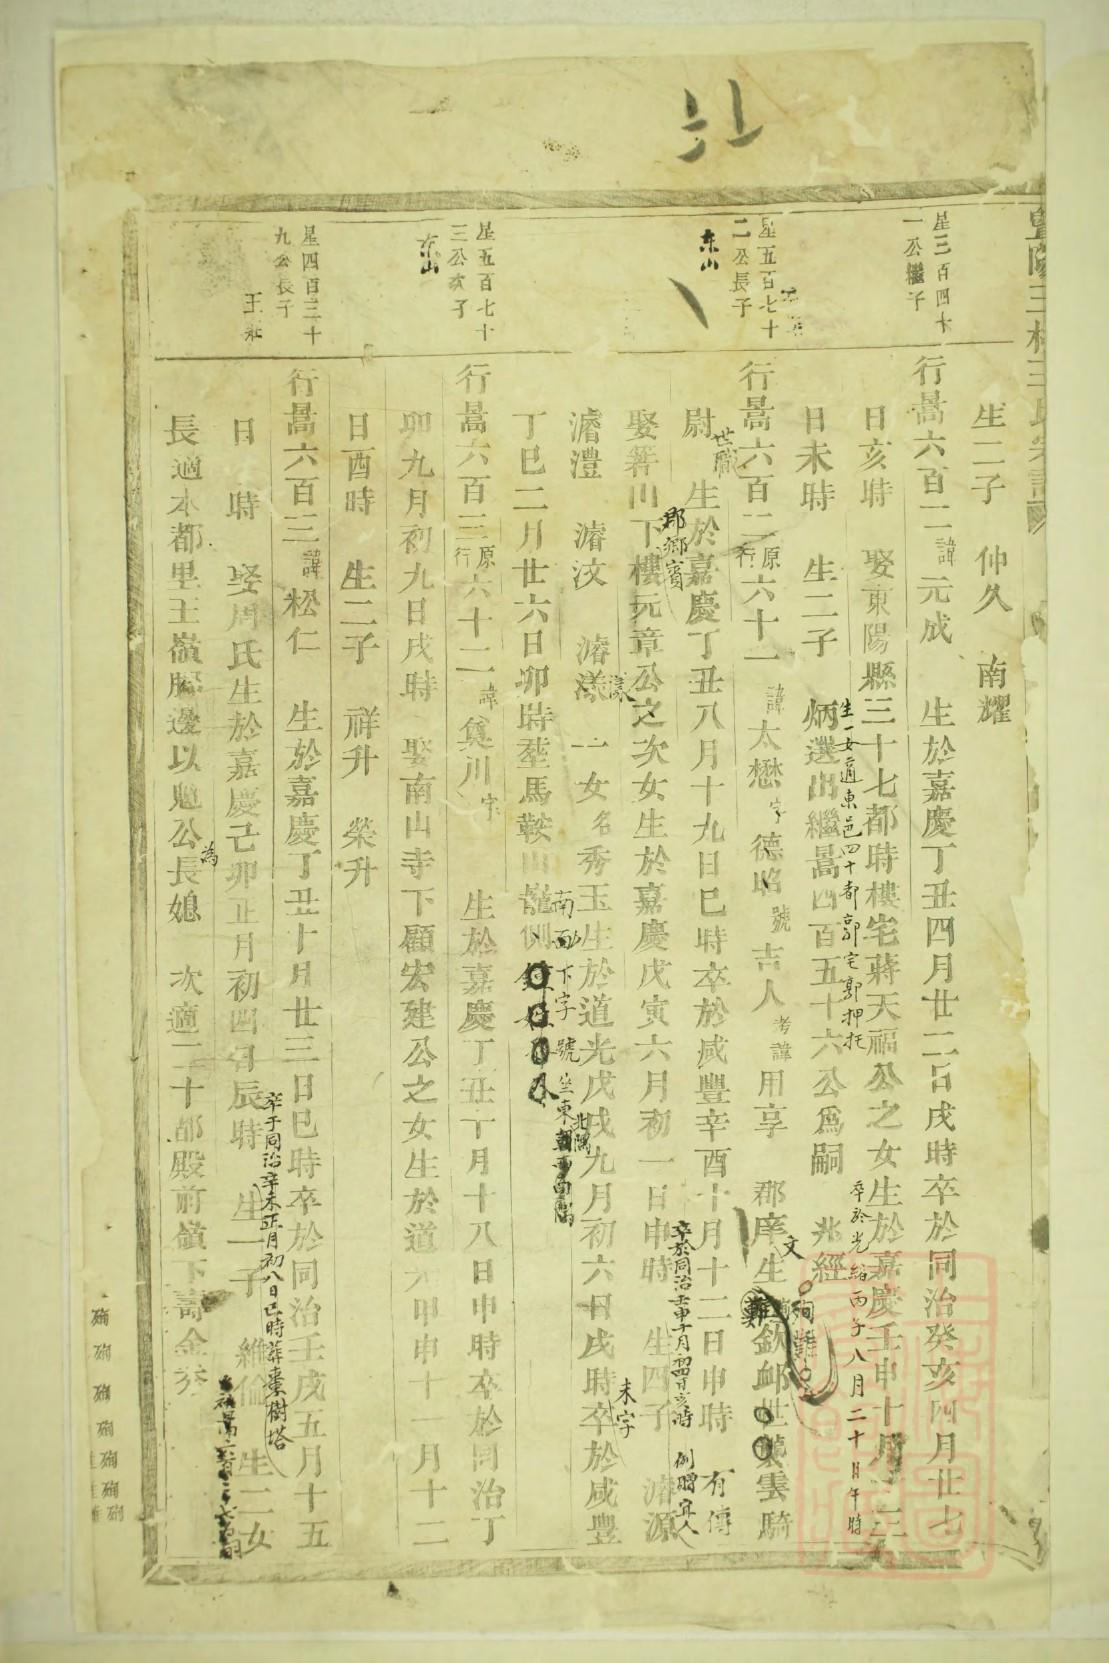 生二子 仲久 南耀
星三百四十
一公繼子
行暠六百二諱元成 生於嘉慶丁丑四月廿二日戌時卒於同治癸亥四月廿七
日亥時 娶東陽縣三十七都時樓宅蔣天福公之女生於嘉慶壬申十月
卒於光緒丙子八月二十日午時
生一女適東邑四十都郭宅郭押托
日未時 生二子 炳選出繼暠四百五十六公爲嗣 兆經
星五百七十
二公長子
东山
行暠六百二原行六十一諱太懋字德昭號吉人考諱用享 郡庠生 欽卹世襲雲騎
文
殉難
尉 世職 生於嘉慶丁丑八月十九日巳時卒於咸豐辛酉十月十二日申時 有傳
郡鄉賓
娶箬川下樓元章公之次女生於嘉慶戊寅六月初一日申時 生四子 濬源
卒於同治壬申十月初四日亥時 例贈宜人
濬澧 濬汶 濬漾 一女名秀玉生於道光戊戌九月初六日戌時卒於咸豐
未字
丁巳二月廿六日卯時塟馬鞍山龍側
南面下字號坐東北隅朝西南隅
星五百七十
三公次子
东山
行暠六百三原行六十二諱奠川字 生於嘉慶丁丑十月十八日申時卒於同治丁
卯九月初九日戌時 娶南山寺下顧宏建公之女生於道光甲申十 月十二
日酉時 生二子 祥升 榮升
星四百三十
九公長子
王
行暠六百三諱松仁 生於嘉慶丁丑十月廿三日巳時卒於同治壬戌五月十五
卒于同治辛未正月初八日巳時葬棗樹塔
日 時 娶周氏生於嘉慶己卯正月初四日辰時 生一子 維倫 生二女
長適本都里王嶺腳邊以魁公長媳 次適二十都殿前嶺下壽金
為